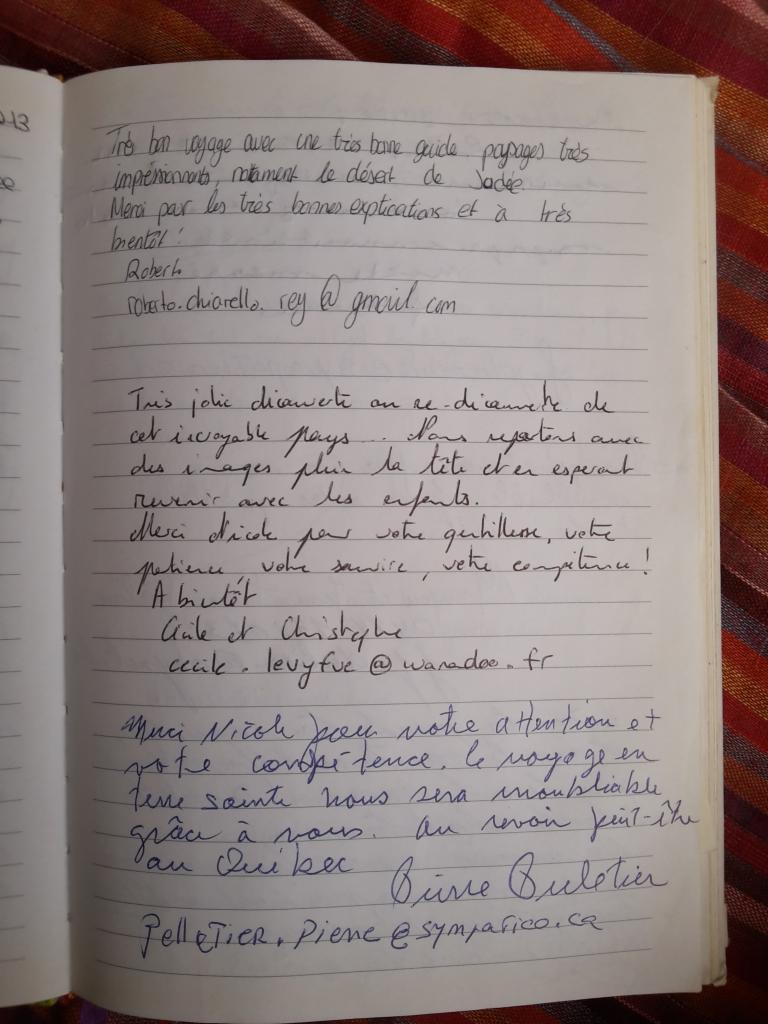 013
Très bon voyage avec une très bonne guide. paysages très
impréssionnants, notament le désert de Judée
Merci par les très bonnes explications et à très
bientôt !
Roberto
roberto.chiarello.rey@gmail.com
Très jolie découverte ou re-découverte de
cet incroyable pays... Nous repartons avec
des images plein la tête et en esperant
revenir avec les enfants.
Merci Nicole pour votre gentillesse, votre
patience, votre sourire, votre compétence !
A bientôt
Cécile et Christophe
cecile.levyfve@wanadoo.fr
Merci Nicole pour votre attention et
votre compétence. le voyage en
terre sainte nous sera inoubliable
grâce à vous. au revoir peut-être
au Québec
Pierre Pelletier
Pelletier.Pierre@sympatico.ca